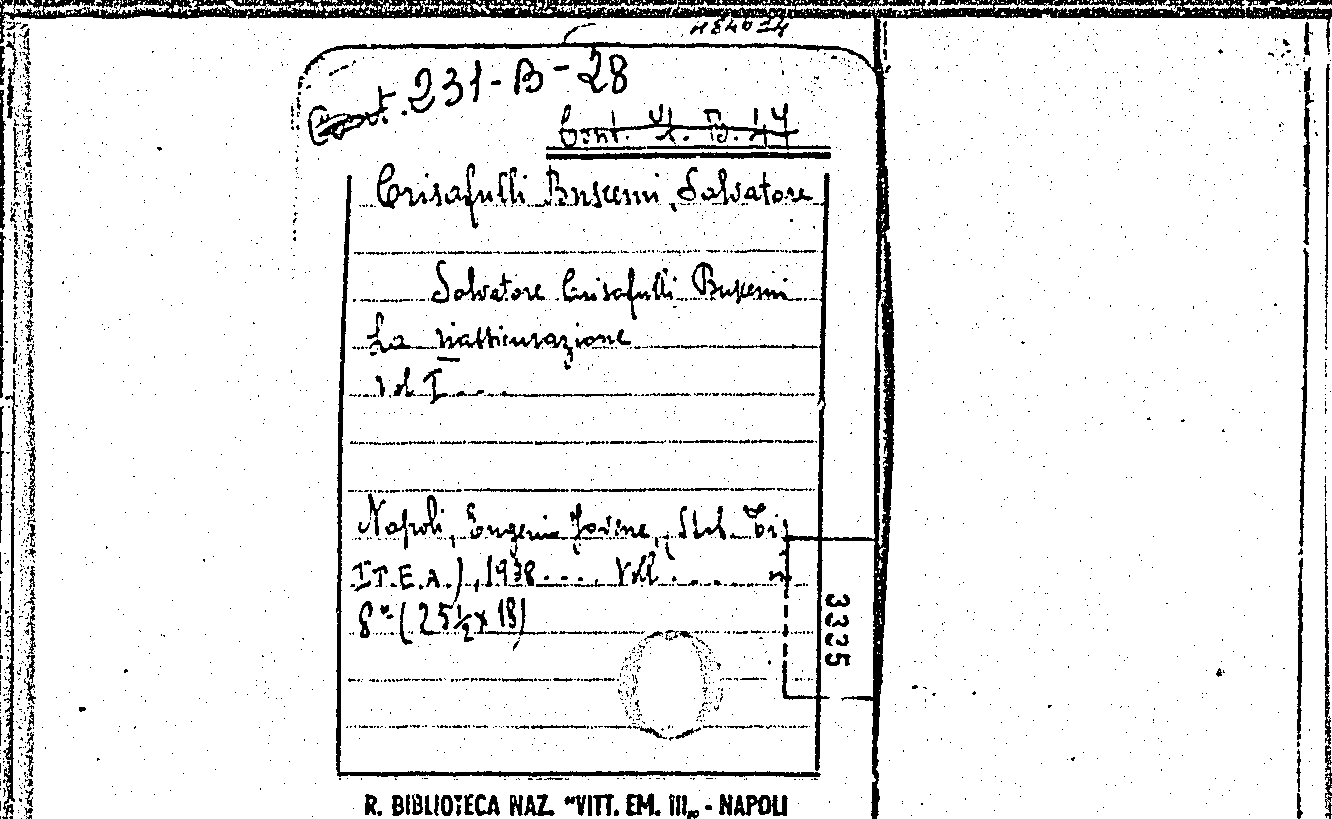 231-B-28
Cont.
Crisafulli Buscemi, Salvatore
Salvatore Crisafulli Buscemi
La riassicurazione
vol I...
Napoli, Eugenio Jovene, Stab. Ti
I.T.E.A.), 1938.... Voll.....
8° (25½ x 18)
3335
R. BIBLIOTECA NAZ. "VITT. EM. III„ - NAPOLI